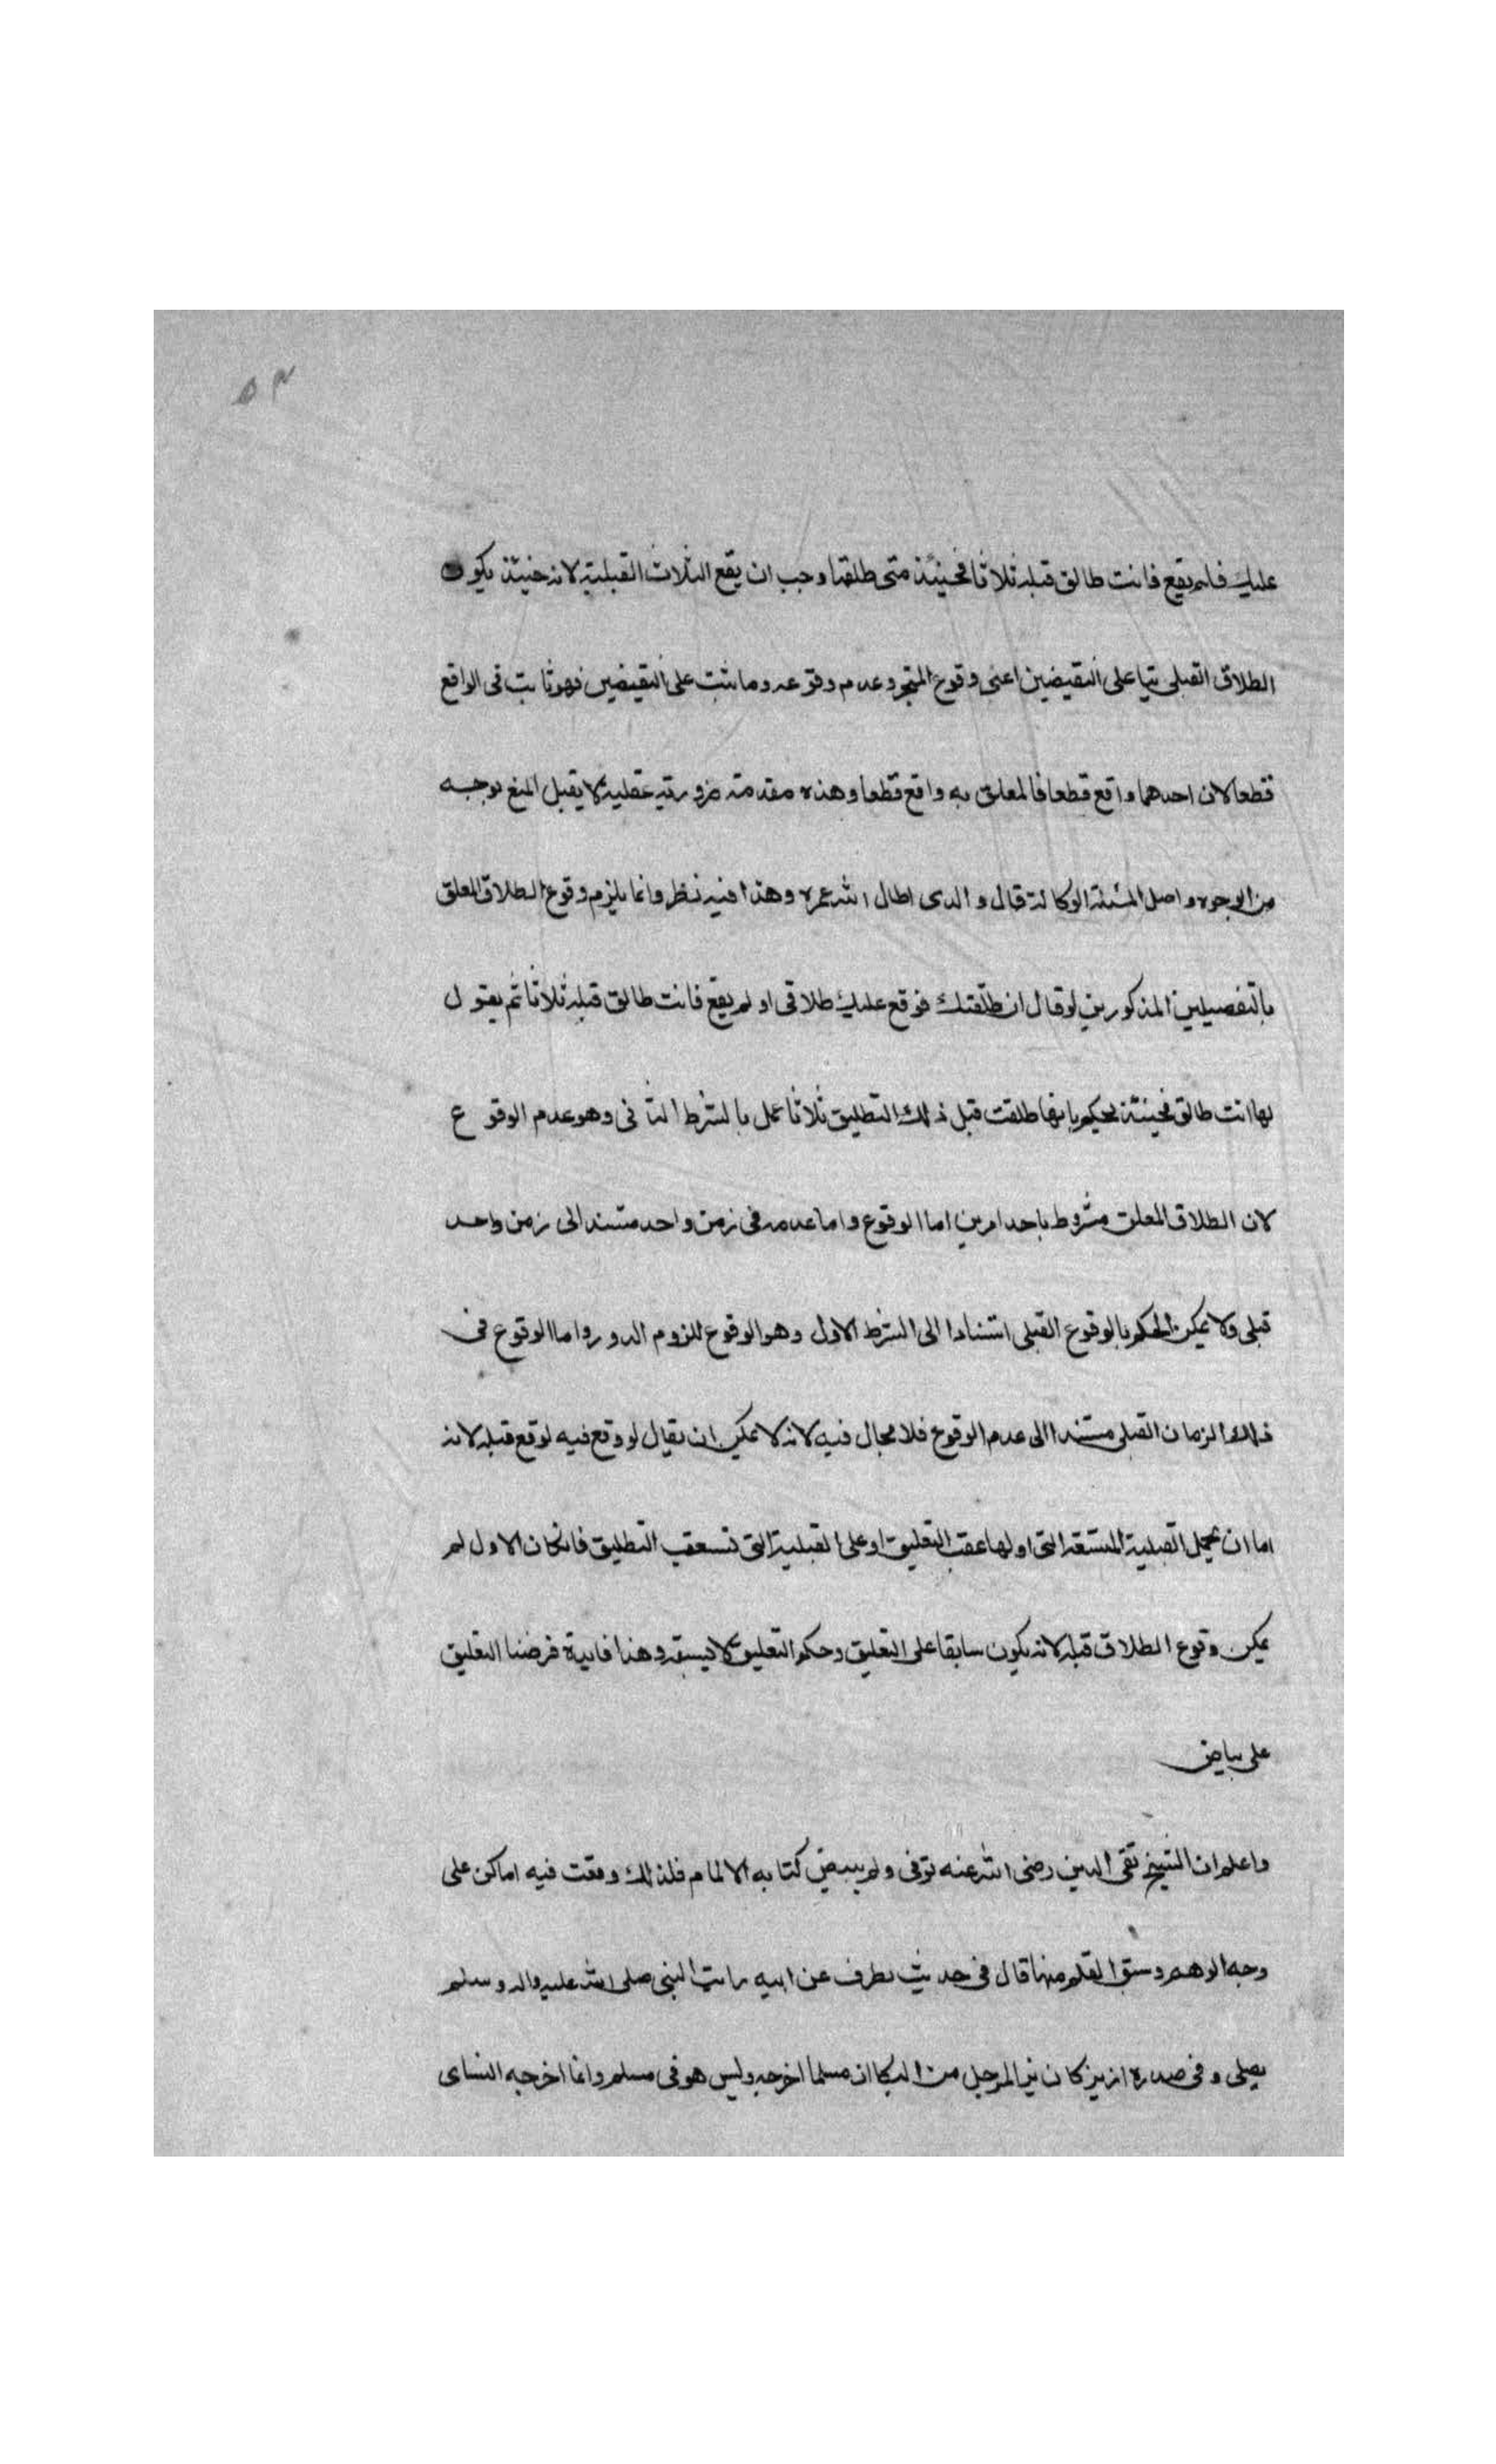 ٥٣
عليك فلم يقع فانت طالق قبله ثلاثا فحينئذ متى طلقها وجب ان يقع الثلاث القبلية لانه حينئذ يكون
الطلاق القبلى ثبتا على النقيضين اعنى وقوع المنجز وعدم وقوعه وما ثبت على النقيضين فهو ثابت فى الواقع
قطعا لان احدهما واقع قطعا فالمعلق به واقع قطعا وهذه مقدمة ضرورية عقلية لا يقبل المنع بوجه
من الوجوه واصل المسئلة الوكالة قال والدى اطال الله عمره وهذا فيه نظر وانما يلزم وقوع الطلاق المعلق
بالتفصيلين المذكورين لو قال ان طلقتك فوقع عليك طلاقى او لم يقع فانت طالق قبله ثلاثا ثم يقول
لها انت طالق فحينئذ يحكم بانها طلقت قبل ذلك التطليق ثلاثا عمل بالشرط الثانى وهو عدم الوقوع
لان الطلاق المعلق مشروط باحد امرين اما الوقوع واما عدمه فى زمن واحد مستند الى زمن واحد
قبلى ولا يمكن الحكم بالوقوع القبلى استنادا الى الشرط الاول وهو الوقوع للزوم الدور واما الوقوع فى
ذلك الزمان القبلى مستندا الى عدم الوقوع فلا محال فيه لانه لا يمكن ان يقال لو وقع فيه لوقع قبله لانه
اما ان يحمل القبلية المتسعة التى اولها عقب التعليق او على القبلية التى تستعقب التطليق فان كان الاول لم
يمكن وقوع الطلاق قبله لانه يكون سابقا على التعليق وحكم التعليق لا يسبقه وهذا فايدة فرضنا التعليق
على بياض
واعلم ان الشيخ تقى الدين رضى الله عنه توفى ولم يبيض كتابه الالمام فلذلك وقعت فيه اماكن على
وجه الوهم وسبق القلم منها قال فى حديث مطرف عن ابيه رايت النبى صلى الله عليه واله وسلم
يصلى وفى صدره ازيز كازيز المرجل من البكا ان مسلما اخرجه وليس هو فى مسلم وانما اخرجه النساى